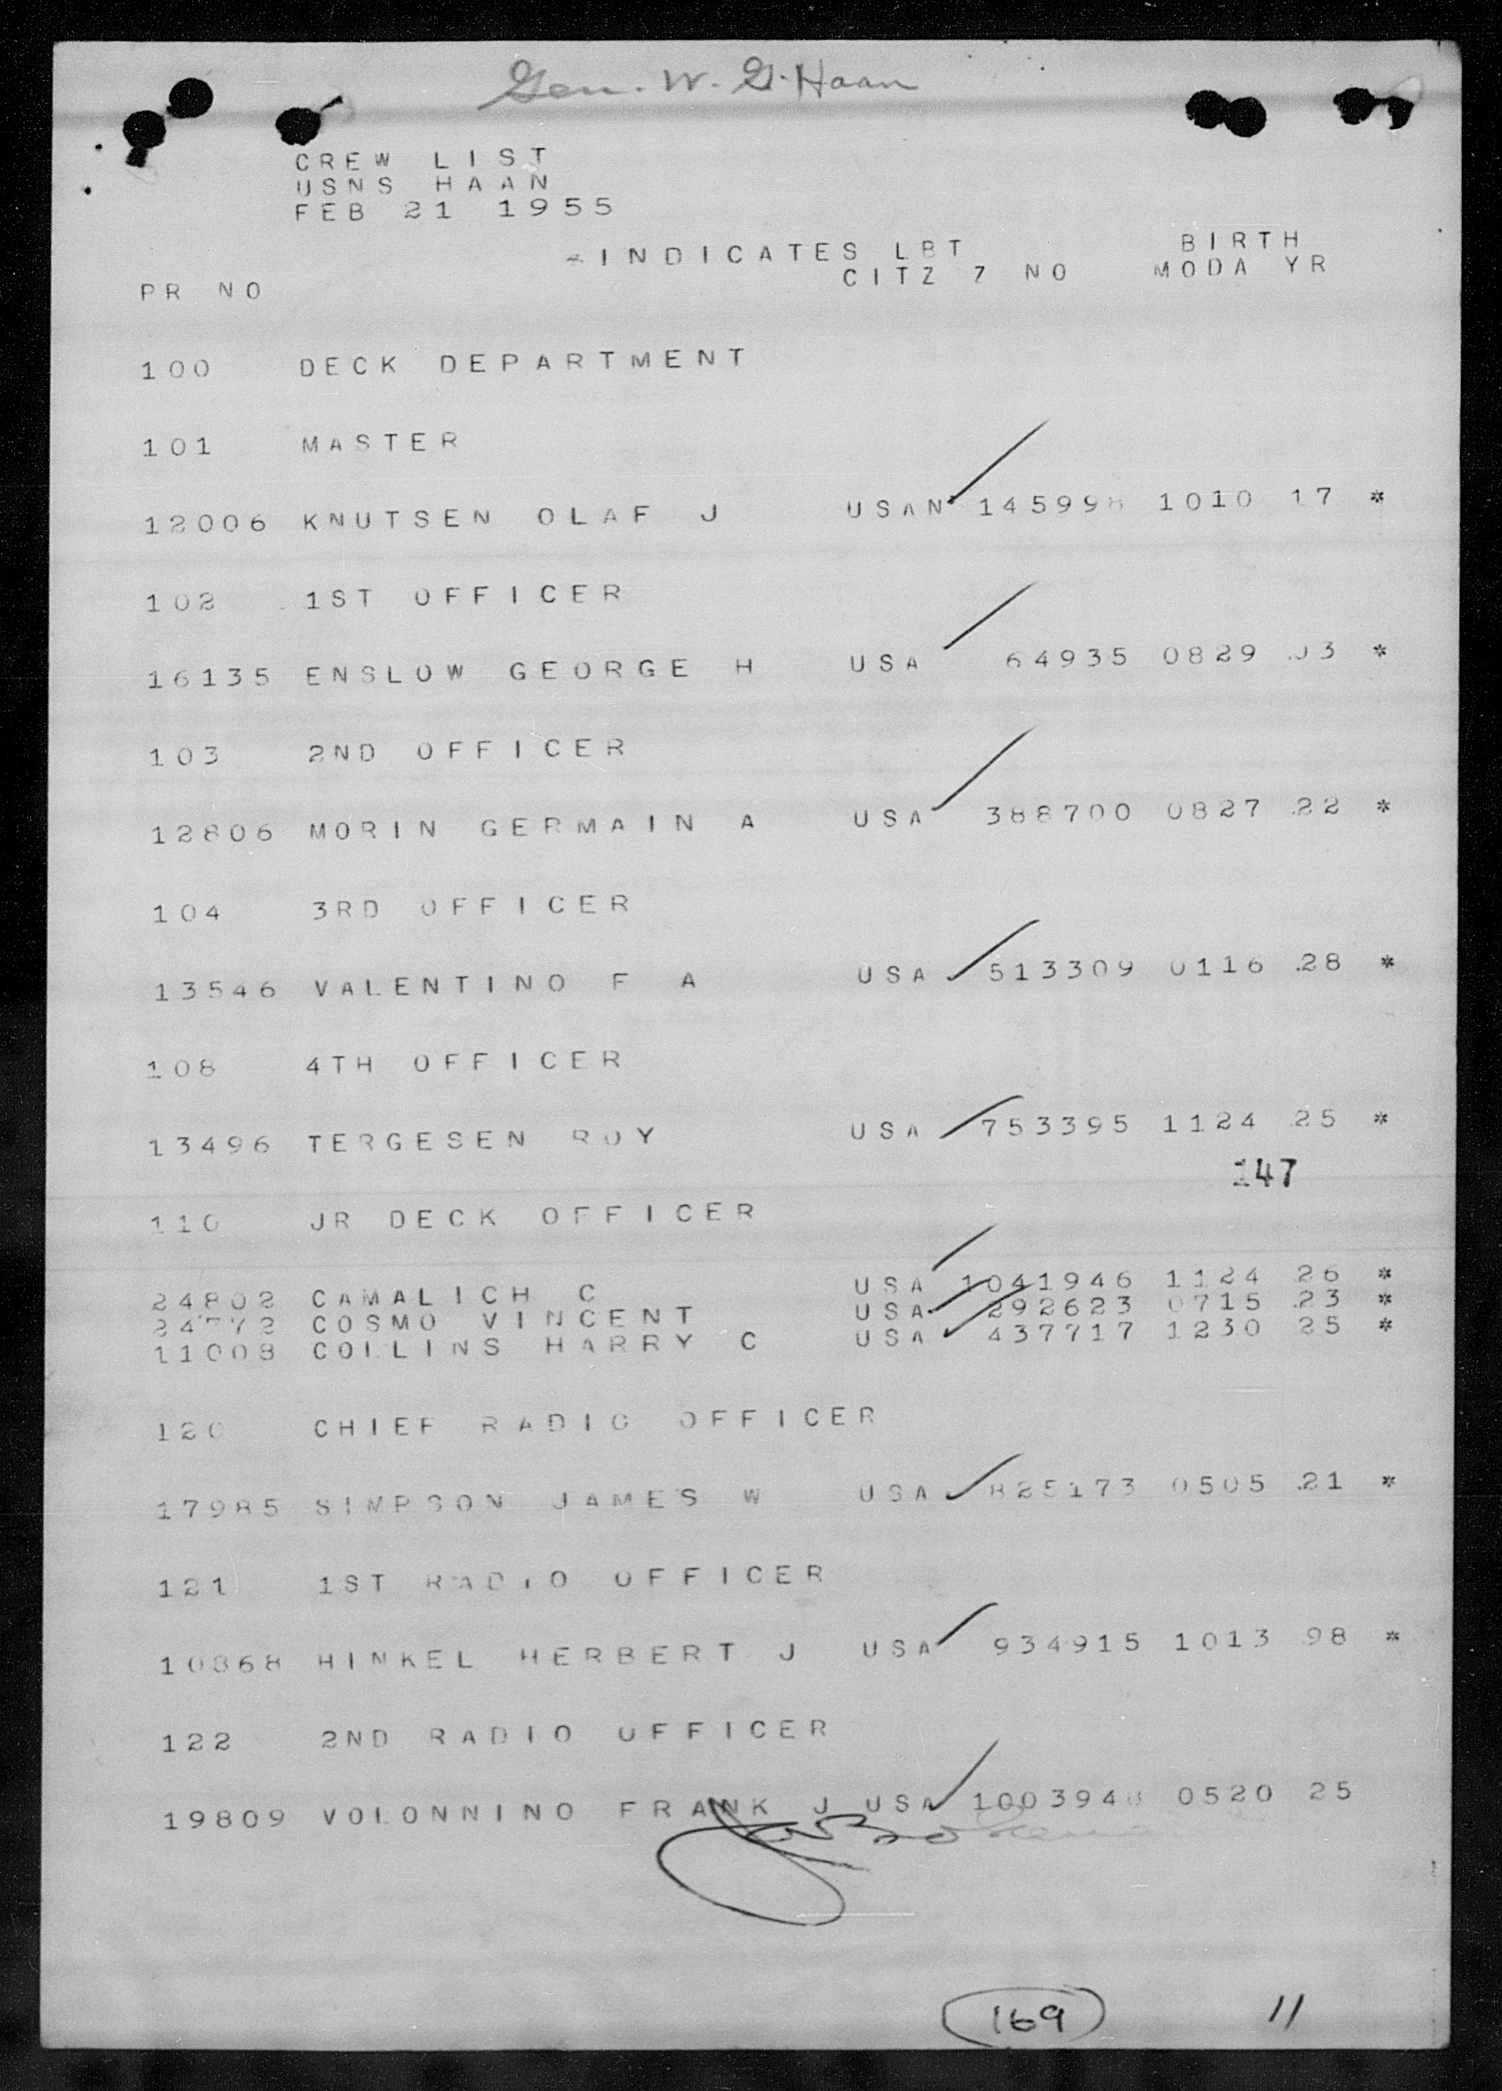 Gen. W. G. Haan
CREW LIST
USNS HAAN
FEB 21 1955
*INDICATES LBT BIRTH
PR NO CITZ Z NO MODA YR
100 DECK DEPARTMENT
101 MASTER
12006 KNUTSEN OLAF J USAN 145998 1010 17 *
102 1ST OFFICER
16135 ENSLOW GEORGE H USA 64935 0829 03 *
103 2ND OFFICER
12806 MORIN GERMAIN A USA 388700 0827 22 *
104 3RD OFFICER
13546 VALENTINO F A USA 513309 0116 28 *
108 4TH OFFICER
13496 TERGESEN ROY USA 753395 1124 25 *
147
110 JR DECK OFFICER
24802 CAMALICH C USA 1041946 1124 26 *
24772 COSMO VINCENT USA 292623 0715 23 *
11008 COLLINS HARRY C USA 437717 1230 25 *
120 CHIEF RADIO OFFICER
17985 SIMPSON JAMES W USA 825173 0505 21 *
121 1ST RADIO OFFICER
10868 HINKEL HERBERT J USA 934915 1013 98 *
122 2ND RADIO OFFICER
19809 VOLONNINO FRANK J USA 1003948 0520 25
169 11